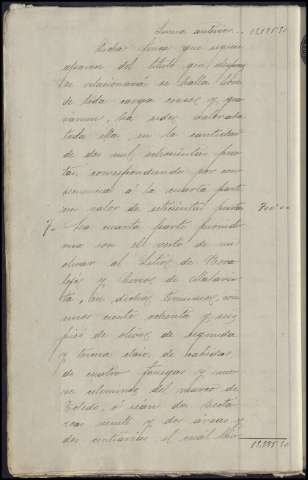 Suma anterior... 
Dicha finca que segun
del título que
se relacionará se halla libre
de toda carga censo y gra-
vámen, ha sido valorada
toda ella en la cantidad
de dos mil ochocientas pese-
tas, correspondiendo por con-
secuencia á la cuarta parte
un valor de setecientas pesetas 700
7 La cuarta parte proindi-
viso con el resto de un
olivar al sitio de
y Cerros de
en dichos términos, con
unos ciento ochenta y seis
pies de olivos, de segunda
y tercera clase, de cabida
de cuatro fanegas y nue-
ve celemines del marco de
Toledo, ó sean dos hectá-
reas veinte y dos áreas y
dos centiáreas, el cual